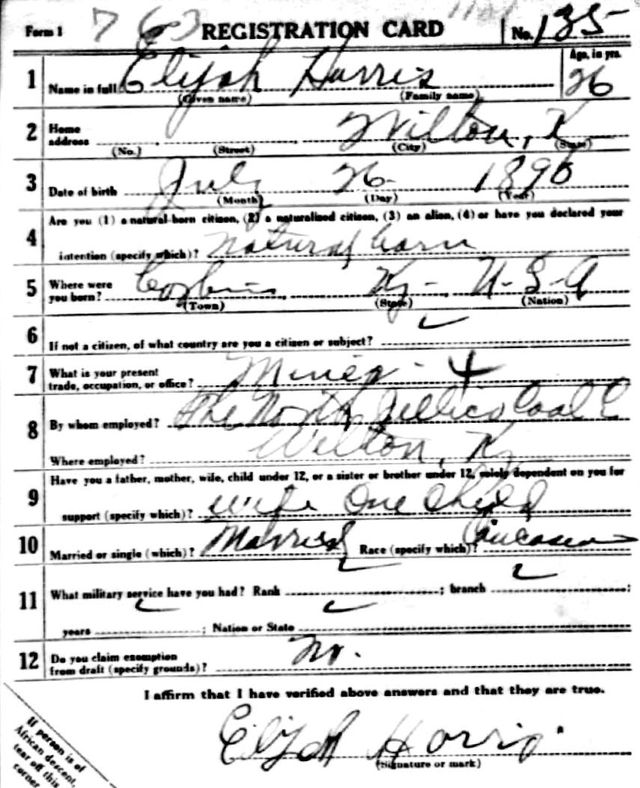 Form 1 763 REGISTRATION CARD No. 135
1 Name in full Elijah Harris Age, in yrs. 26
(Given name) (Family name)
2 Home address Wilton, Ky
(No.) (Street) (City) (State)
3 Date of birth July 26 1890
(Month) (Day) (Year)
4 Are you (1) a natural-born citizen, (2) a naturalized citizen, (3) an alien, (4) or have you declared your
intention (specify which)? Natural born
5 Where were you born? Corbin, Ky- U-S-A
(Town) (State) (Nation)
6 If not a citizen, of what country are you a citizen or subject?
7 What is your present trade, occupation, or office? Miner - 4
8 By whom employed? The North Jellico Coal C
Where employed? Wilton, Ky
9 Have you a father, mother, wife, child under 12, or a sister or brother under 12, solely dependent on you for
support (specify which)? wife One Child
10 Married or single (which)? Married Race (specify which)? Caucasian
11 What military service have you had? Rank ; branch ;
years ; Nation or State
12 Do you claim exemption from draft (specify grounds)? No.
I affirm that I have verified above answers and that they are true.
Elijah Harris
(Signature or mark)
If person is of
African descent,
tear off this
corner